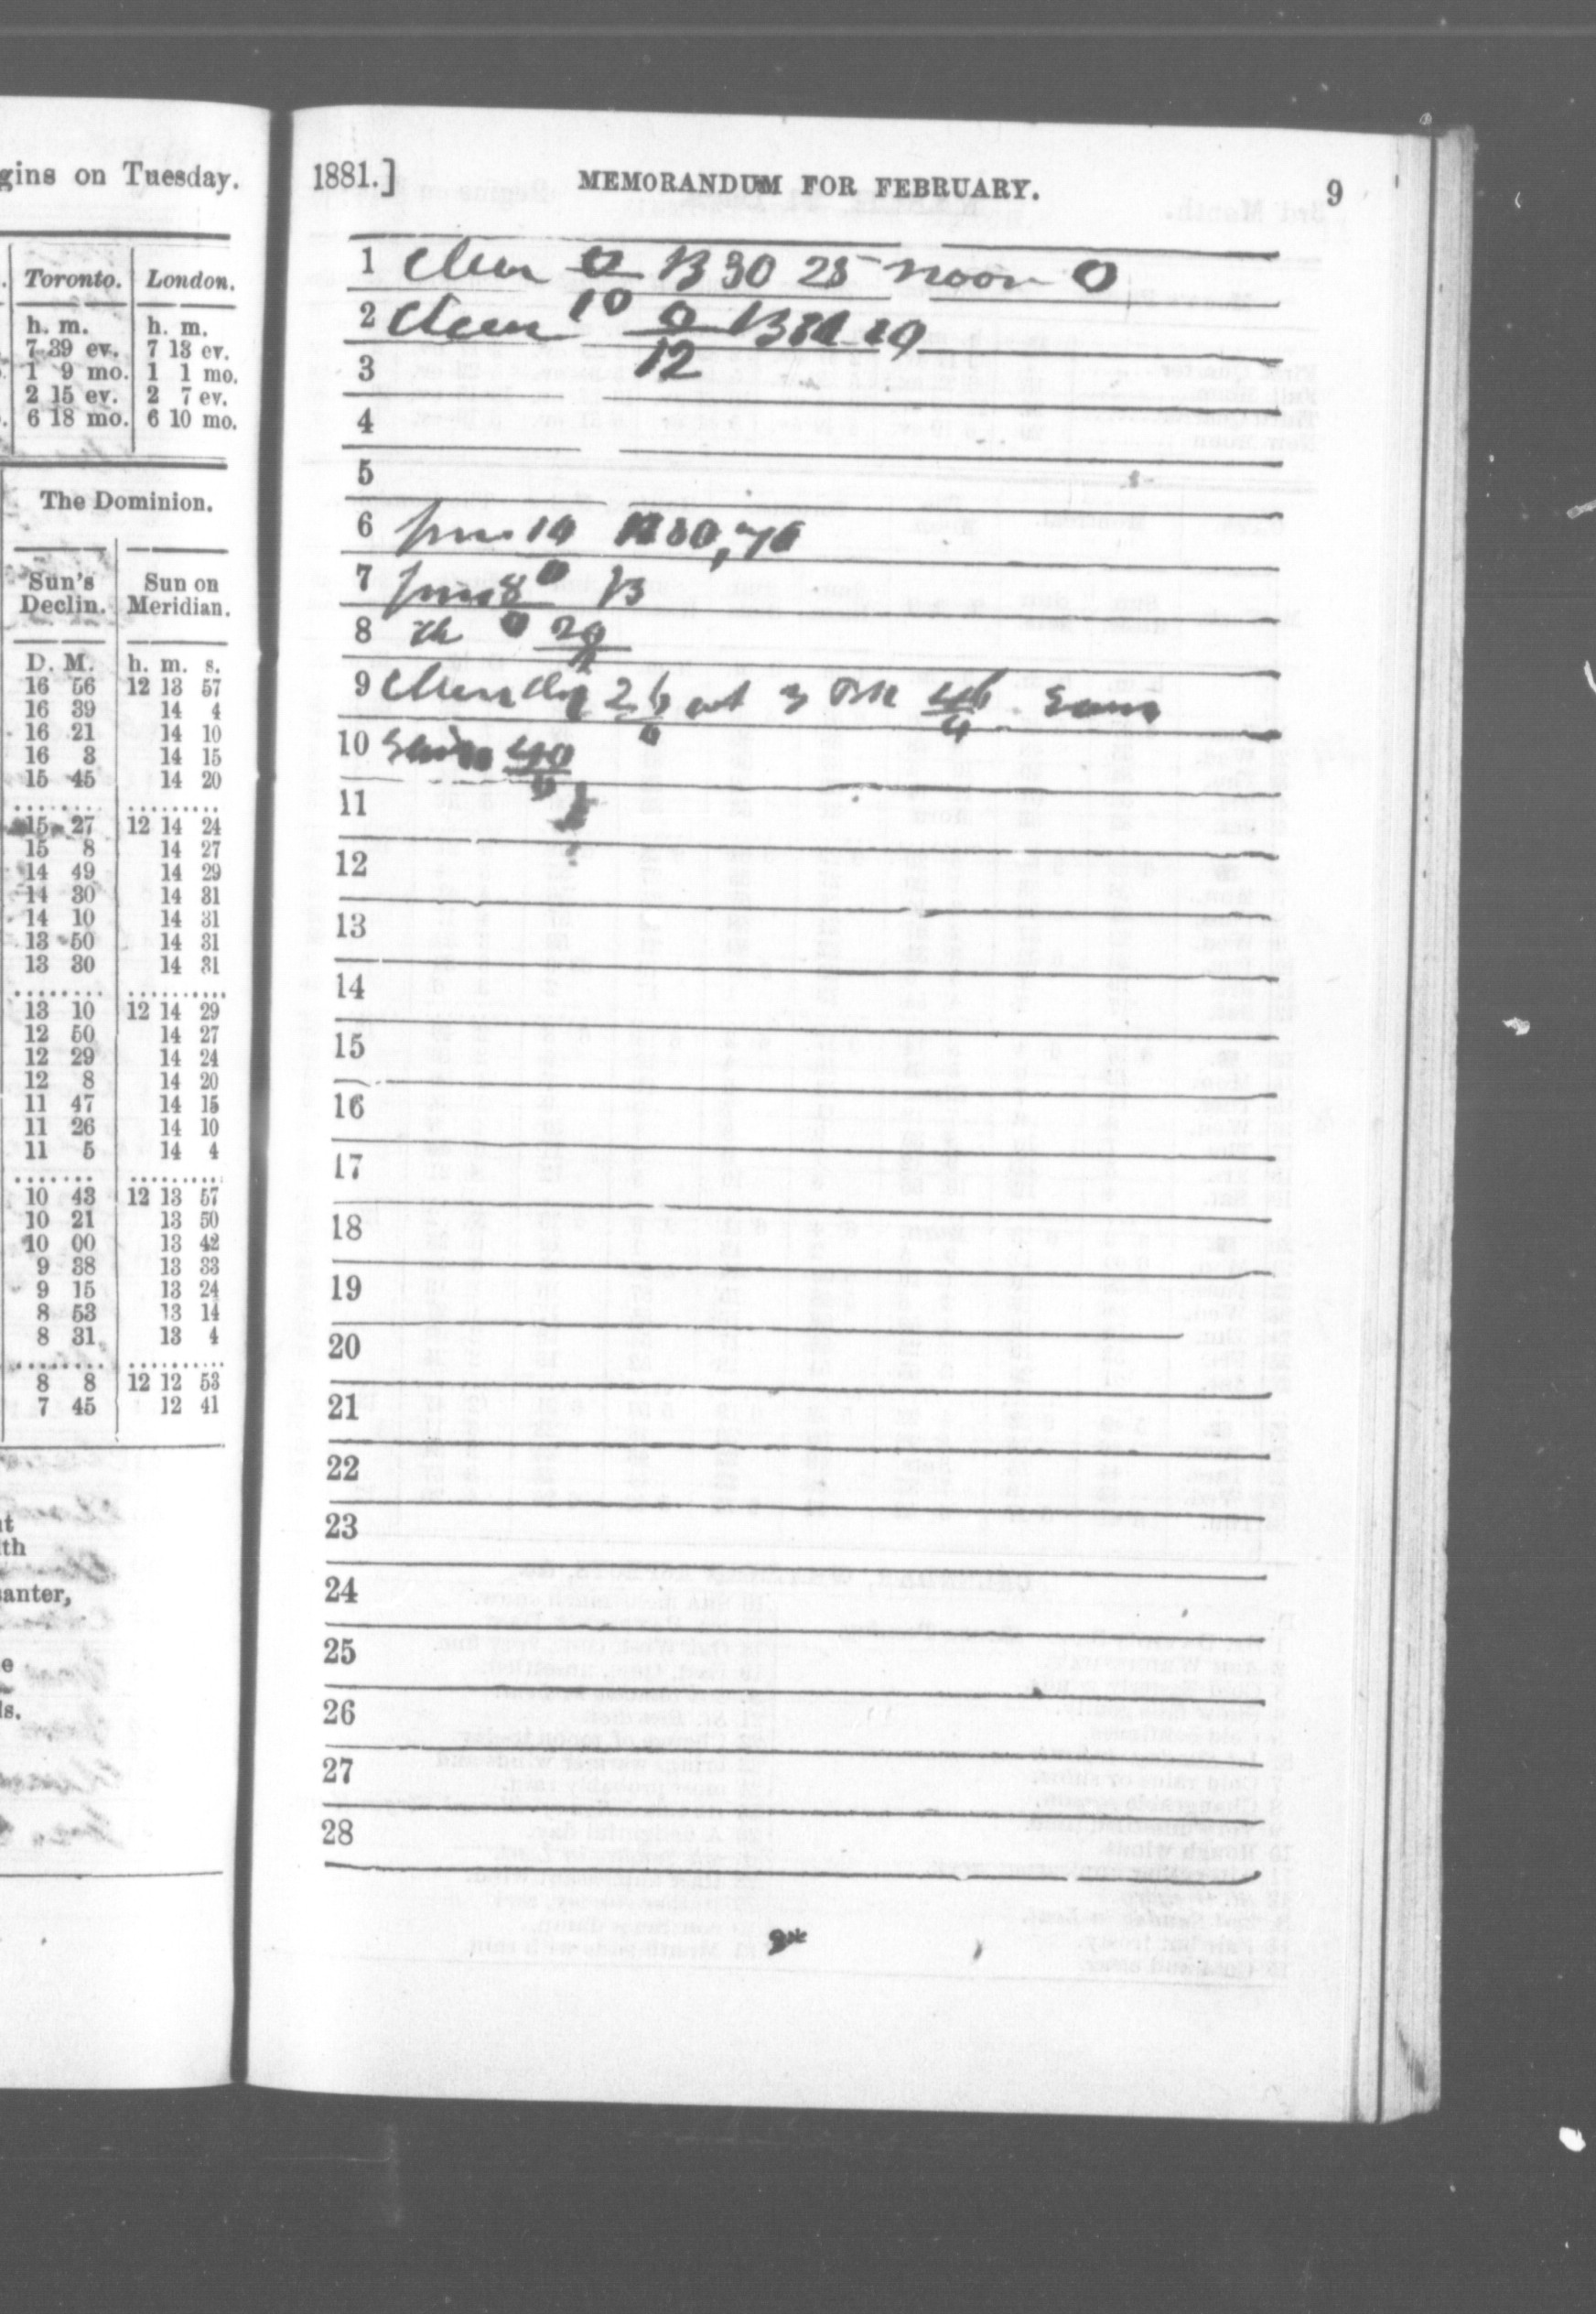 gins on Tuesday.
Toronto. London.
h. m. h. m.
7 39 ev. 7 13 ev.
1 9 mo. 1 1 mo.
2 15 ev. 2 7 ev.
6 18 mo. 6 10 mo.
The Dominion.
Sun's Declin. Sun on Meridian.
D. M. h. m. s.
16 56 12 13 57
16 39 14 4
16 21 14 10
16 3 14 15
15 45 14 20
15 27 12 14 24
15 8 14 27
14 49 14 29
14 30 14 31
14 10 14 31
13 50 14 31
13 30 14 31
13 10 12 14 29
12 50 14 27
12 29 14 24
12 8 14 20
11 47 14 15
11 26 14 10
11 5 14 4
10 43 12 13 57
10 21 13 50
10 00 13 42
9 38 13 33
9 15 13 24
8 53 13 14
8 31 13 4
8 8 12 12 53
7 45 12 41
th
santer,
e
ds.
1881.] MEMORANDUM FOR FEBRUARY. 9
1 Clear 0 B 30 25 noon 0
2 Clear 10 0 B
12
3
4
5
6 10
7 8 0 B
8 0 20
9 26 at 3 46
4
10 40
11
12
13
14
15
16
17
18
19
20
21
22
23
24
25
26
27
28